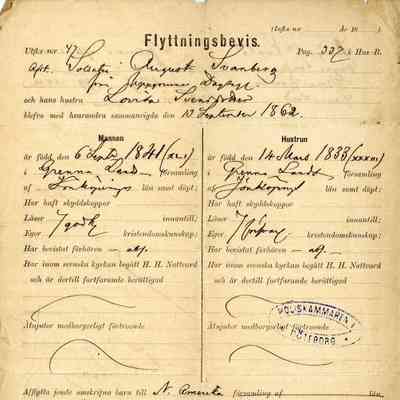 (Infl:s nr År 18
Flyttningsbevis.
Utfl:s nr 47. Pag. 337 i Hus-fl.
Afsk. Soldaten August Svanberg
från
och hans hustru Lovisa Svensdotter
blefvo med hvarandra sammanvigda den 10 September 1862.
Mannen
är född den 6 Sept. 1841 (XLI)
i Grenna Lands- församling
af Jönköpings län samt döpt;
Har haft skyddskoppor
Läser innantill;
Eger kristendomskunskap;
Har bevistat förhören
Har inom svenska kyrkan begått H. H. Nattvard
och är dertill fortfarande berättigad
Åtnjuter medborgerligt förtroende
Hustrun
är född den 14 Mars 1833 (XXXIII)
i Grenna Lands- församling
af Jönköpings län samt döpt;
Har haft skyddskoppor
Läser innantill;
Eger kristendomskunskap;
Har bevistat förhören
Har inom svenska kyrkan begått H. H. Nattvard
och är dertill fortfarande berättigad
POLISKAMMAREN I
GÖTEBORG
Åtnjuter medborgerligt förtroende
Afflytta jemte omskrifna barn till N. Amerika församling af län